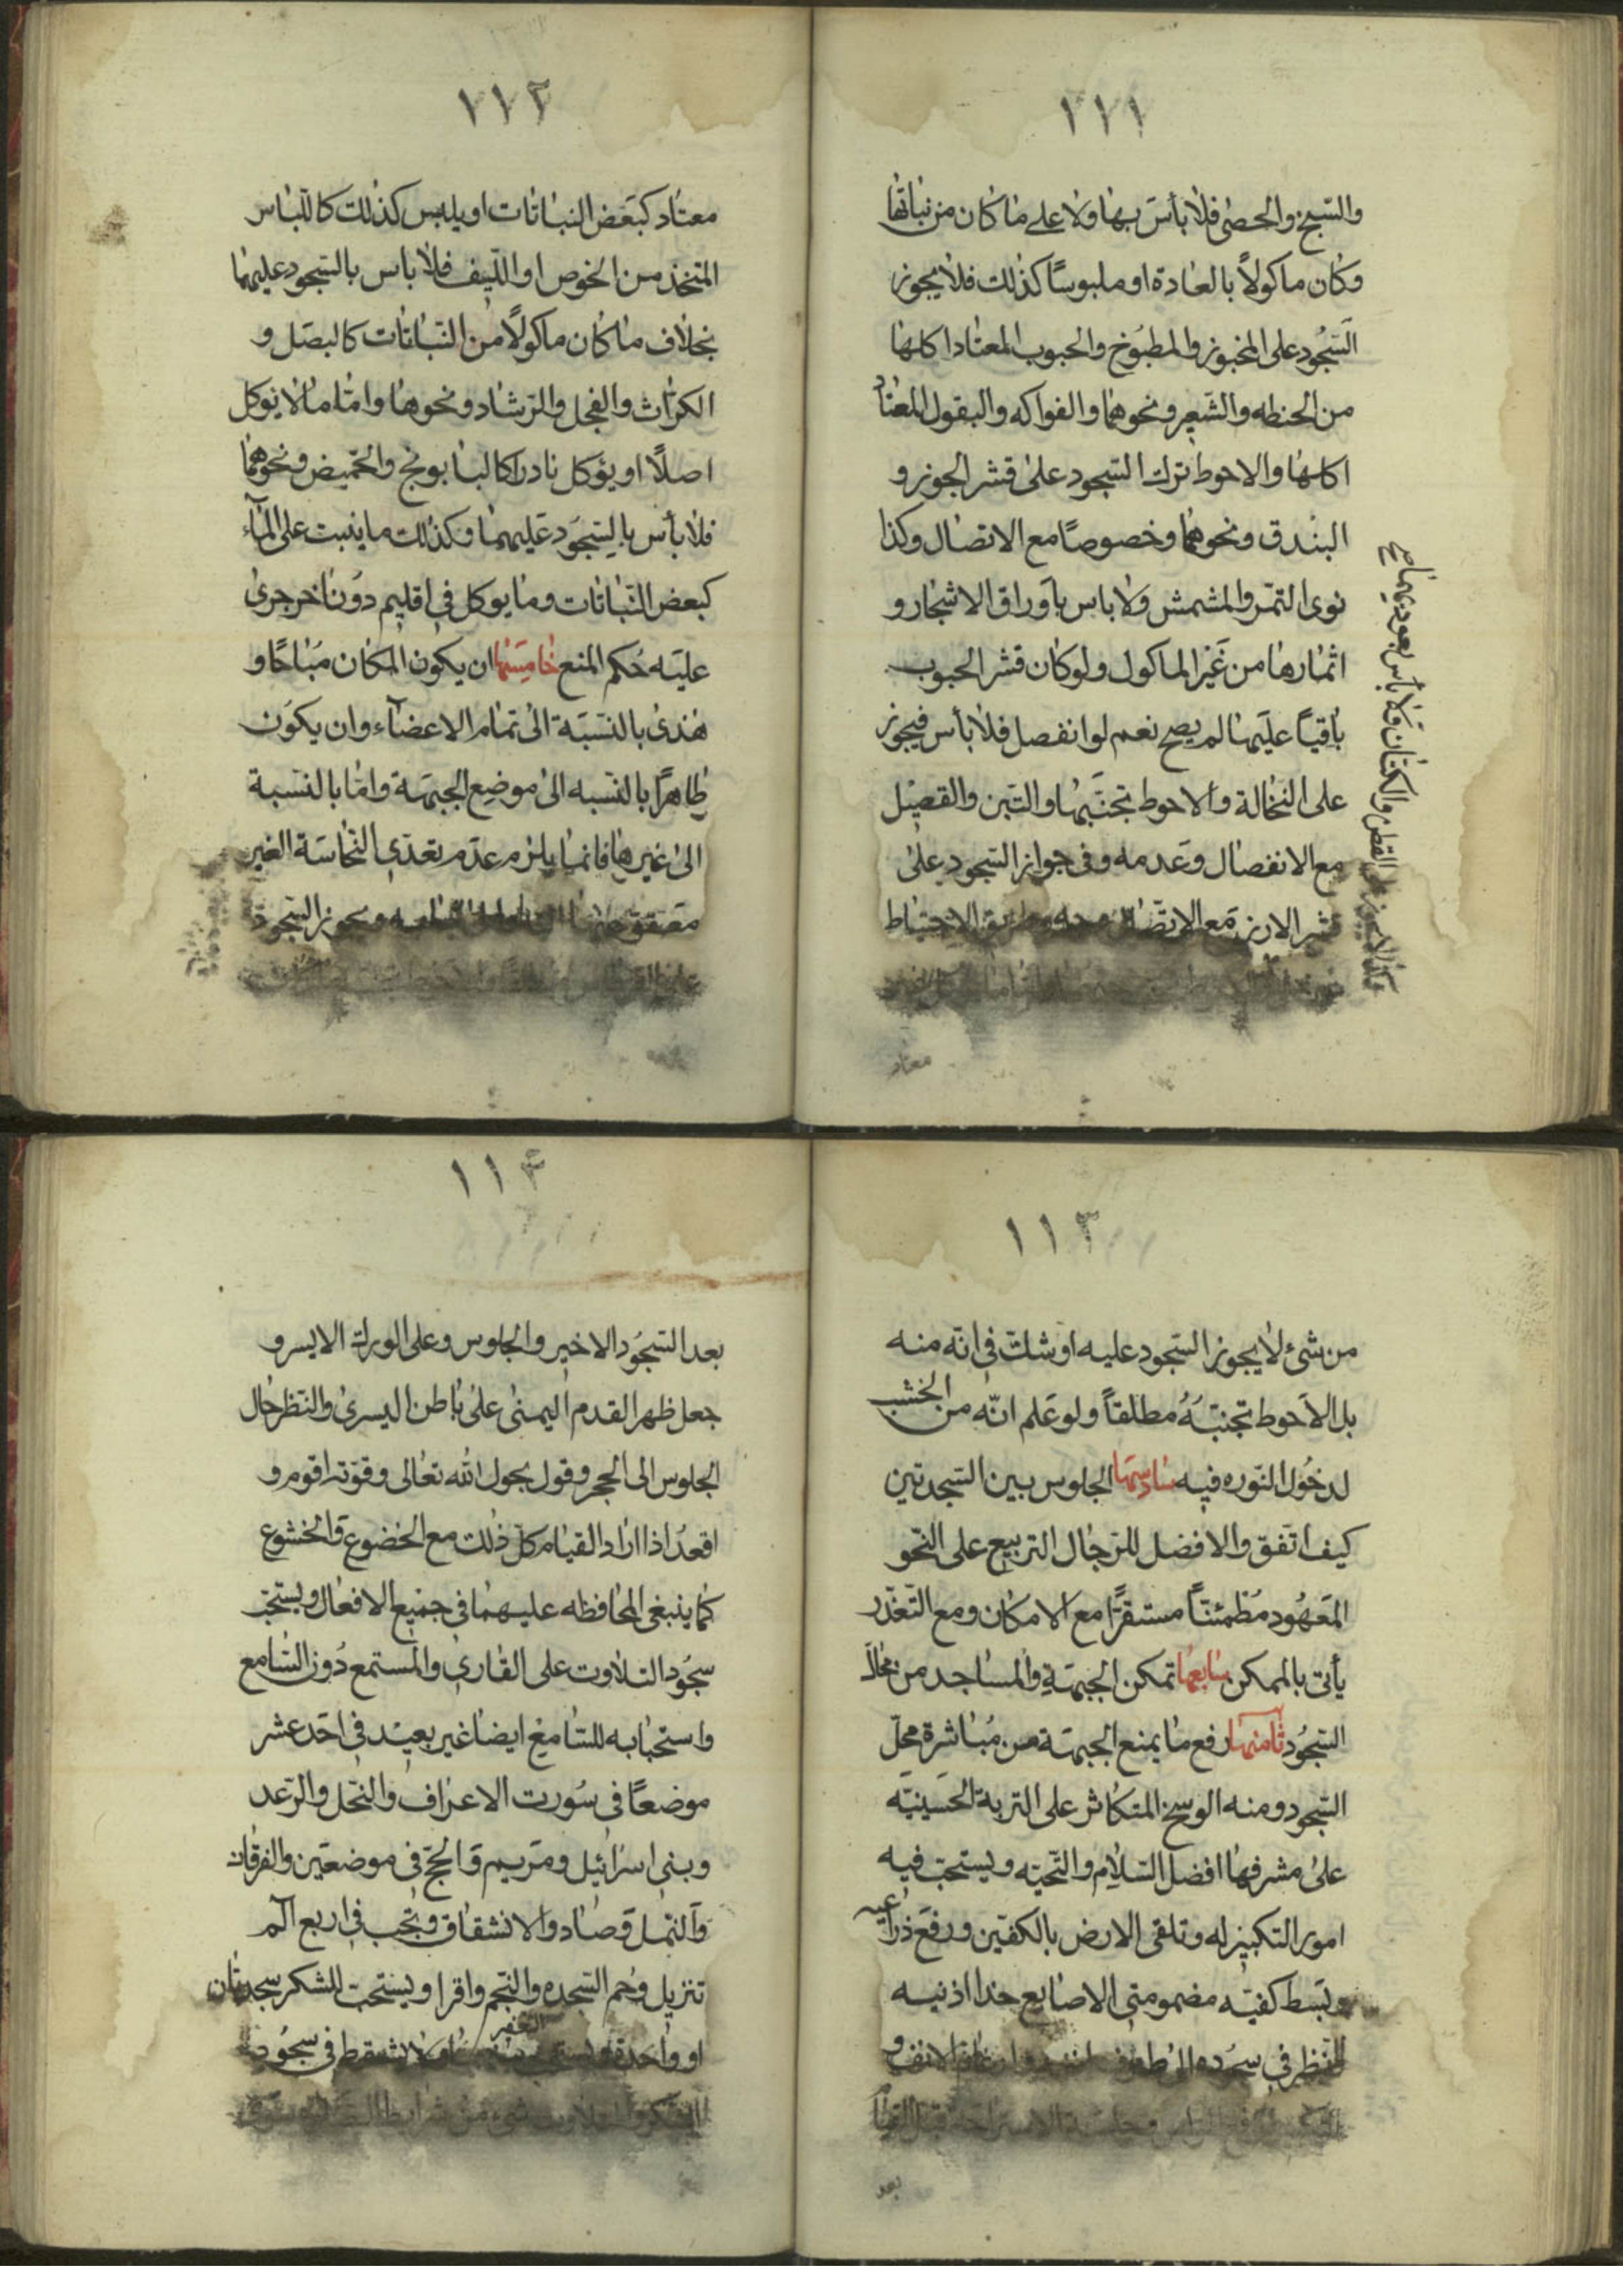 ١١١
والسبخ والحصى فلا بأس بها ولا على ما كان من نباتها
وكان ماكولاً بالعادة او ملبوسًا كذلك فلا يجوز
السّجُود على المخبوز والمطبوخ والحبوب المعتاد اكلها
من الحنطه والشعير ونحوهما والفواكه والبقول المعتاد
اكلها والاحوط ترك السّجود على قشر الجوز و
البندق ونحوهما وخصوصًا مع الاتصال وكذا
نوى التمر والمشمش ولا باس باوراق الاشجار و
اثمارها من غير الماكول ولو كان قشر الحبوب
باقيًا عليها لم يصح نعم لو انفصل فلا بأس فيجوز
على النخالة والاحوط تجنّبها والتبن والقصيل
مع الانفصال وعدمه وفى جواز السّجود على
قشر الارز مع الاتّصال وجه وطريق الاحتياط
معتاد
القطن والكتان ولا بأس بعوديهما صح
١١٢
معتاد كبعض النباتات او يلبس كذلك كاللّباس
المتّخذ من الخوص او اللّيف فلا باس بالسّجود عليهما
بخلاف ما كان ماكولاً من النّباتات كالبصل و
الكراث والفجل والرّشاد ونحوها وامّا ما لا يوكل
اصلًا او يؤكل نادرا كالبابونج والخميض ونحوهما
فلا بأس بالسّجود عليهما وكذلك ما ينبت على المآء
كبعض النّباتات وما يوكل فى اقليم دون اخر جرى
عليه حُكم المنع خامسُها ان يكون المكان مُباحًا و
هذى بالنّسَبَة الى تمام الاعضآء وان يكون
طاهرًا بالنّسبه الى موضع الجبهة وامّا بالنّسبة
الى غيرها فانما يلزم عدم تعدّي النّجاسَة الغير
معفو عنها ويجوز السّجود
١١٣
من شئ لا يجوز السّجود عليه او شك فى انّه منه
بل الاحوط تجنّبُهُ مطلقاً ولو عَلم انّه من الخشب
لدخُول النّوره فيه سادسها الجلوس بين السّجدتين
كيف اتّفق والافضل للرّجال التربيع على النّحو
المَعهُود مُطمئنّاً مستقرًّا مع الامكان ومع التّعذّر
يأتى بالممكن سابعها تمكن الجبهَةِ والمساجد من محال
السّجُود ثامنها رفع ما يمنع الجبهَة من مُباشرة محلّ
السّجود ومنه الوسخ المتكاثر على التربة الحسينيّه
على مشرفها افضل السّلام والتّحيّه ويستحبّ فيه
امور التكبير له وتلقى الارض بالكفّين ورفع ذراعيه
وبَسط كفيّه مضمومتى الاصابع حذا اذنيه
والنّظر فى سجُوده الى طرف انفه وارغام الانف و
بعد
١١٤
بعد السّجُود الاخير والجلوس وعلى الورك الايسر و
جعل ظهر القدم اليمنى على باطن اليسرى والنّظر حال
الجلوس الى الحجر وقول بحول الله تعالى وقوّته اقوم و
اقعدُ اذا اراد القيام كلّ ذلك مع الخضوع والخشوع
كما ينبغى المحافظه عليهما فى جميع الافعال ويستحبّ
سجُود التلاوت على القارى والمستمع دُون السّامع
واستحبابه للسّامع ايضا غير بعيد فى احَد عشر
موضعًا فى سُورت الاعراف والنّحل والرّعد
وبنى اسرائيل ومَريم والحجّ فى موضعَين والفرقان
والنّمل وصاد والانشقاق وتجب فى اربع الم
تنزيل وحم السّجده والنّجم واقرا ويستحبّ للشّكر سجدتان
او واحدة ولا يشترط فى سجُود